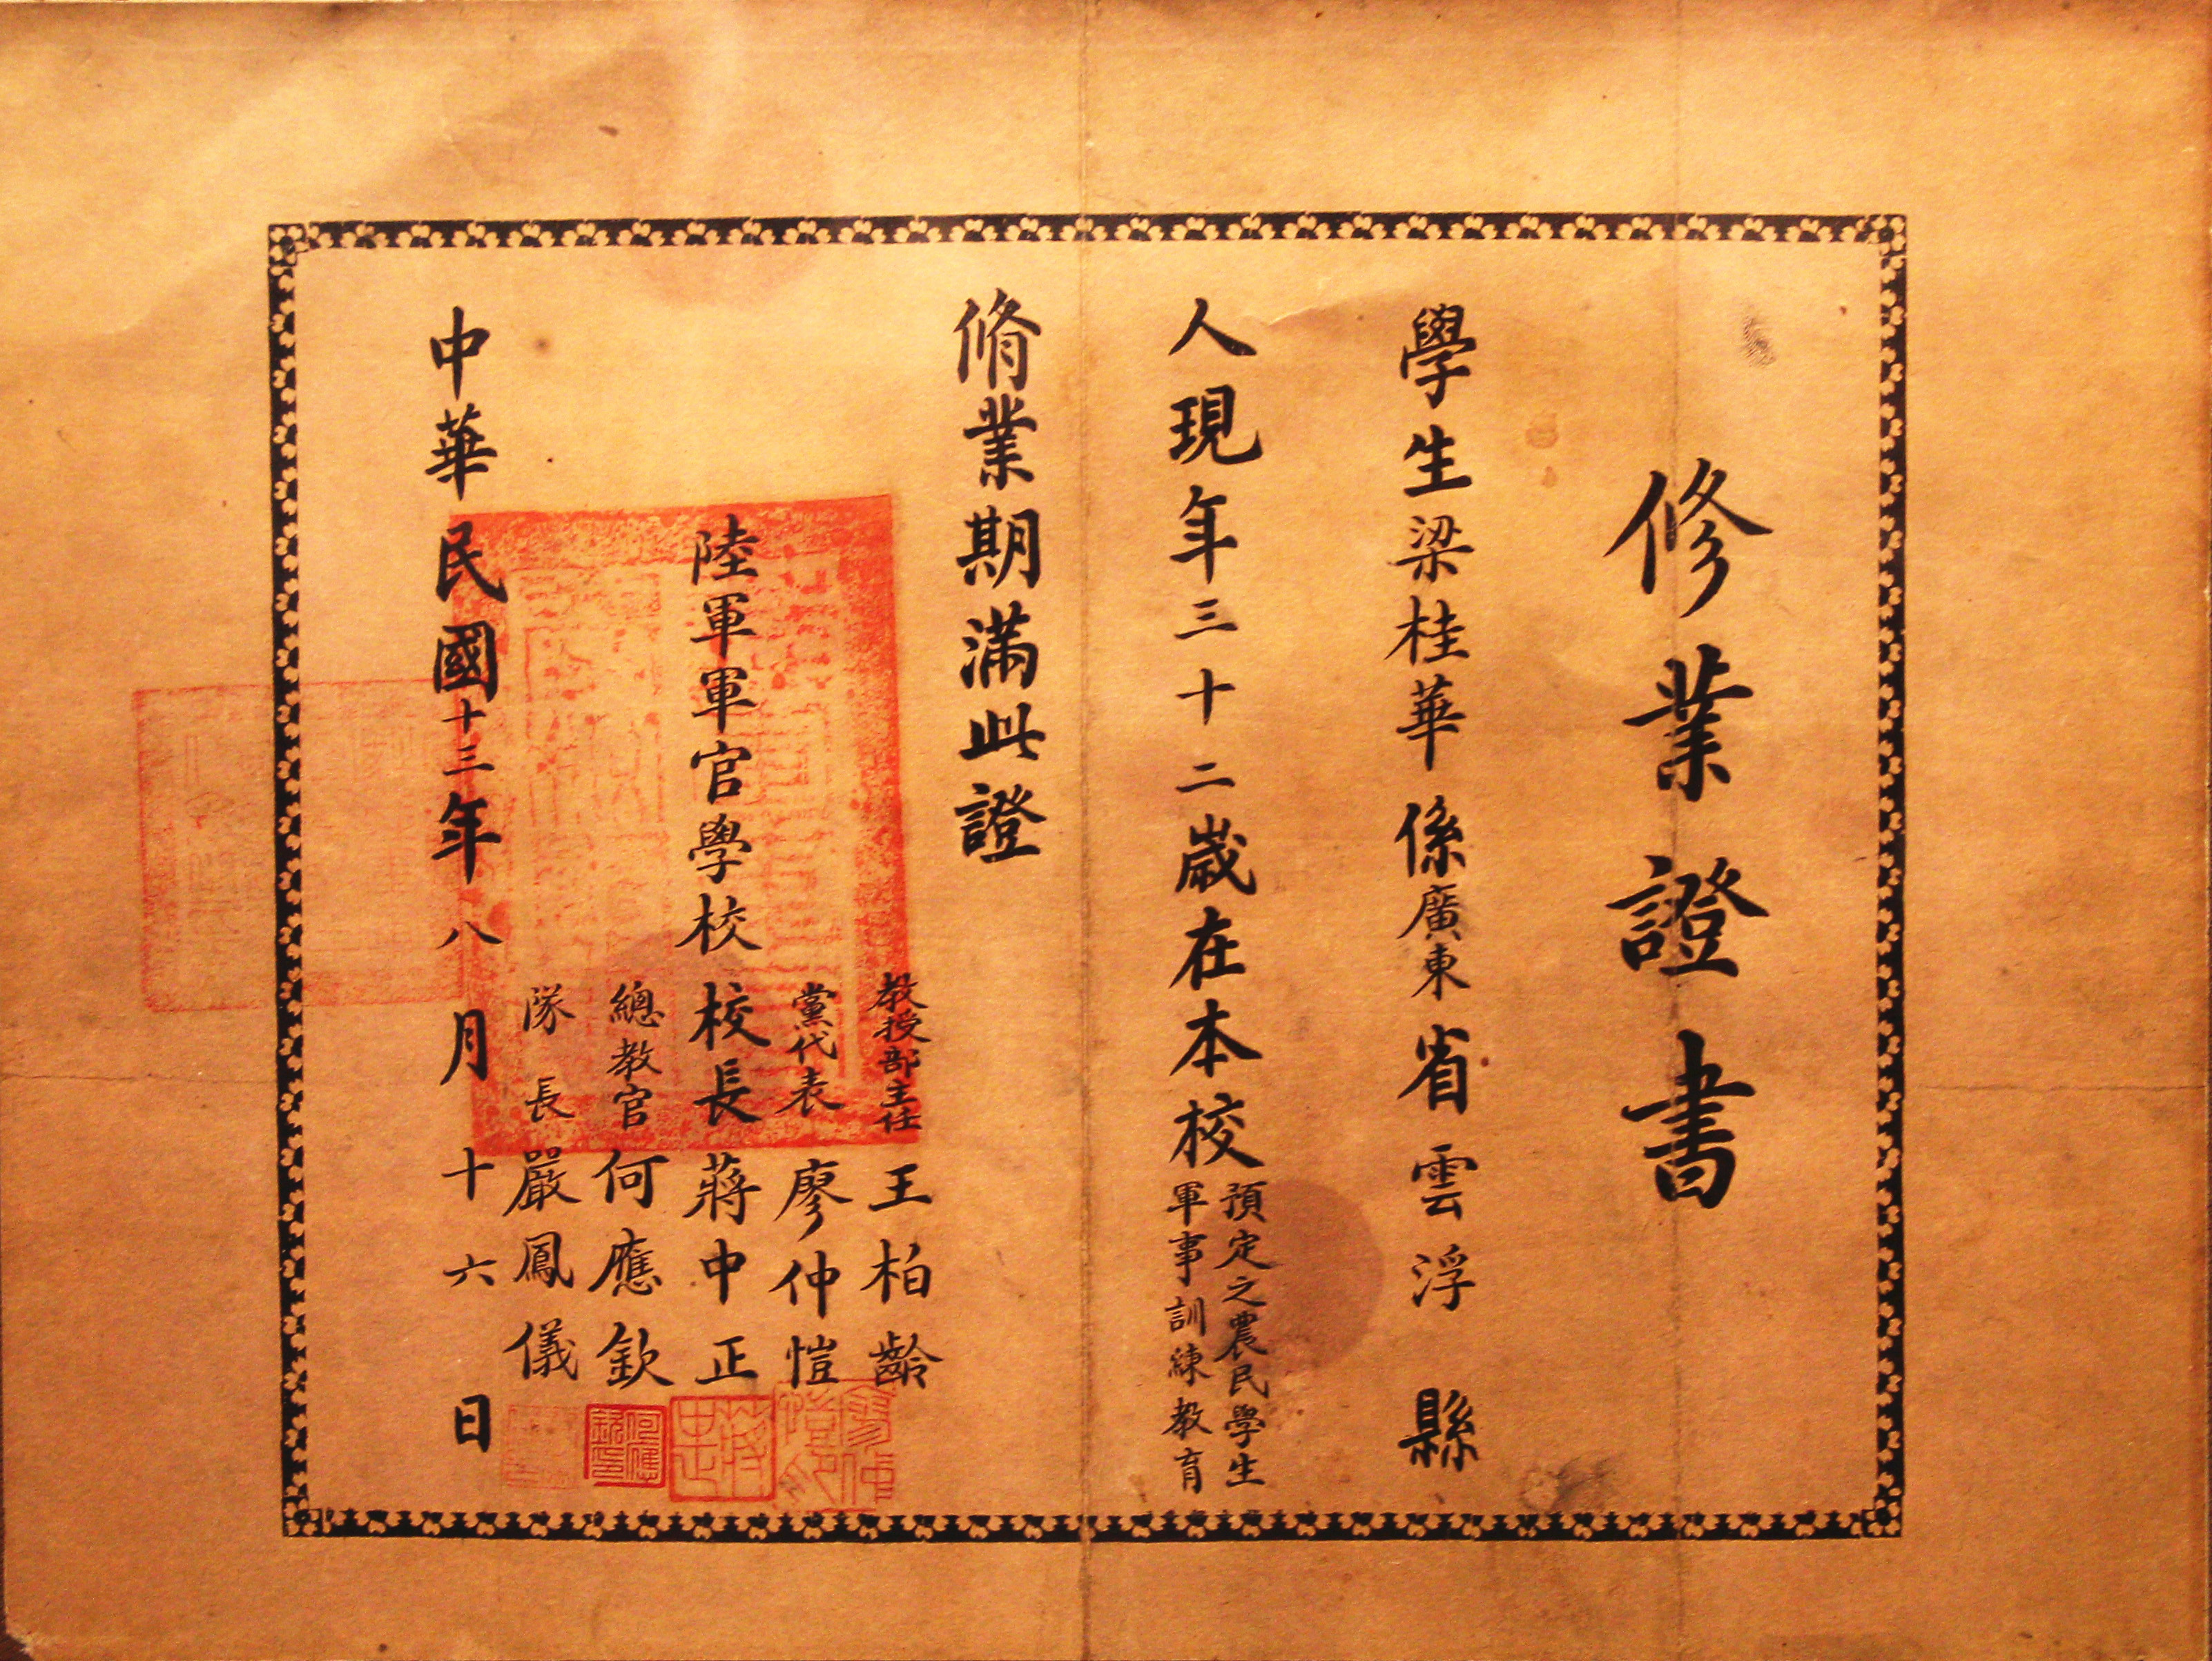 修業證書
學生梁桂華係廣東省雲浮縣
人現年三十二歲在本校預定之農民學生
軍事訓練教育
脩業期滿此證
教授部主任王柏齡
黨代表廖仲愷
陸軍軍官學校校長蔣中正
總教官何應欽
隊長嚴鳳儀
中華民國十三年八月十六日